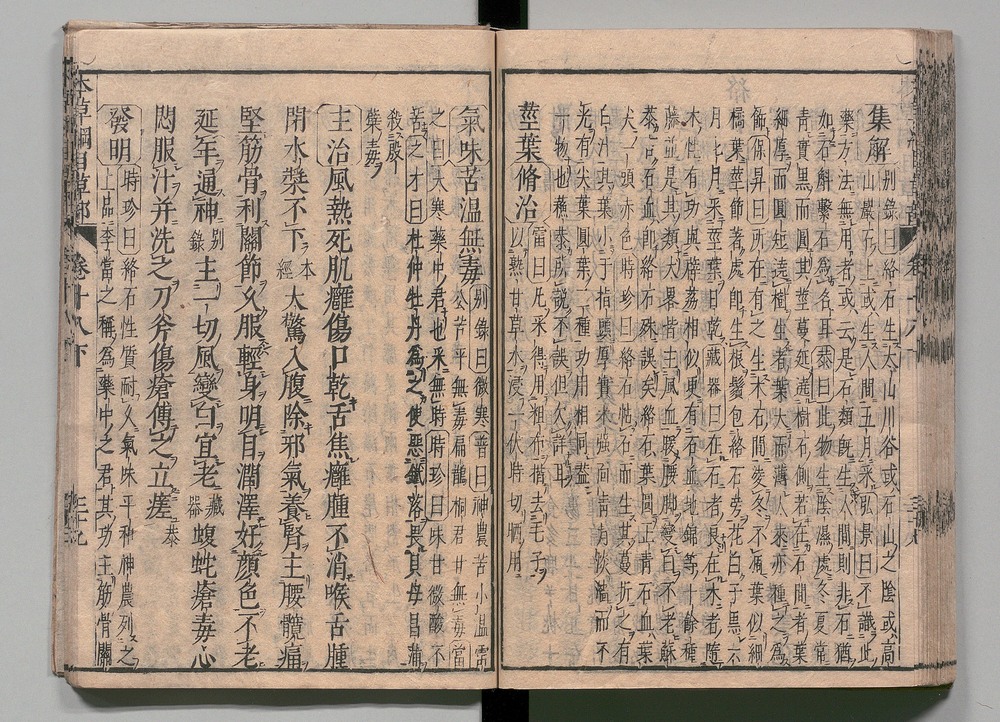 集解別錄曰絡石生太山川谷或石山之陰或高
山巖石上或生人間五月采弘景曰不識此
藥方法無用者或云是石類既生人間則非石猶
如石斛繫石爲名耳恭曰此物生陰濕處冬夏常
青實黑而圓其莖蔓延遶樹石側若在石間者葉
細厚而圓短遶樹生者葉大而薄人家亦種之爲
飾保昇曰所在有之生木石間凌冬不凋葉似細
橘葉莖節著處即生根鬚包絡石旁花白子黑六
月七月采莖葉日乾藏器曰在石者良在木者隨
木性有功與薜荔相似更有石血地錦等十餘種
藤並是其類大畧皆主風血暖腰脚變白不老蘇
恭言石血即絡石殊誤矣絡石葉圓正青石血葉
尖一頭赤色時珍曰絡石貼石而生其蔓折之有
白汁其葉小于指頭厚實木強面青背淡澀而不
光有尖葉圓葉二種功用相同蓋
一物也蘇恭所說不誤但欠詳耳
莖葉脩治雷曰凡采得用粗布揩去毛子
以熟甘草水浸一伏時切晒用
氣味苦溫無毒別錄曰微寒普曰神農苦小溫雷
公苦平無毒扁鵲桐君甘無毒當
之曰大寒藥中君也采無時時珍曰味甘微酸不
苦之才曰杜仲牡丹爲之使惡鐵落畏貝母昌蒲
殺殷
孽毒
主治風熱死肌癰傷口乾舌焦癰腫不消喉舌腫
閉水漿不下本經大驚入腹除邪氣養腎主腰髖痛
堅筋骨利關節久服輕身明目潤澤好顏色不老
延年通神別錄主一切風變白宜老藏器蝮蛇瘡毒心
悶服汁并洗之刀斧傷瘡傅之立瘥恭
發明時珍曰絡石性質耐久氣味平和神農列之
上品李當之稱爲藥中之君其功主筋骨關
本草綱目草部 卷十八下 三十九